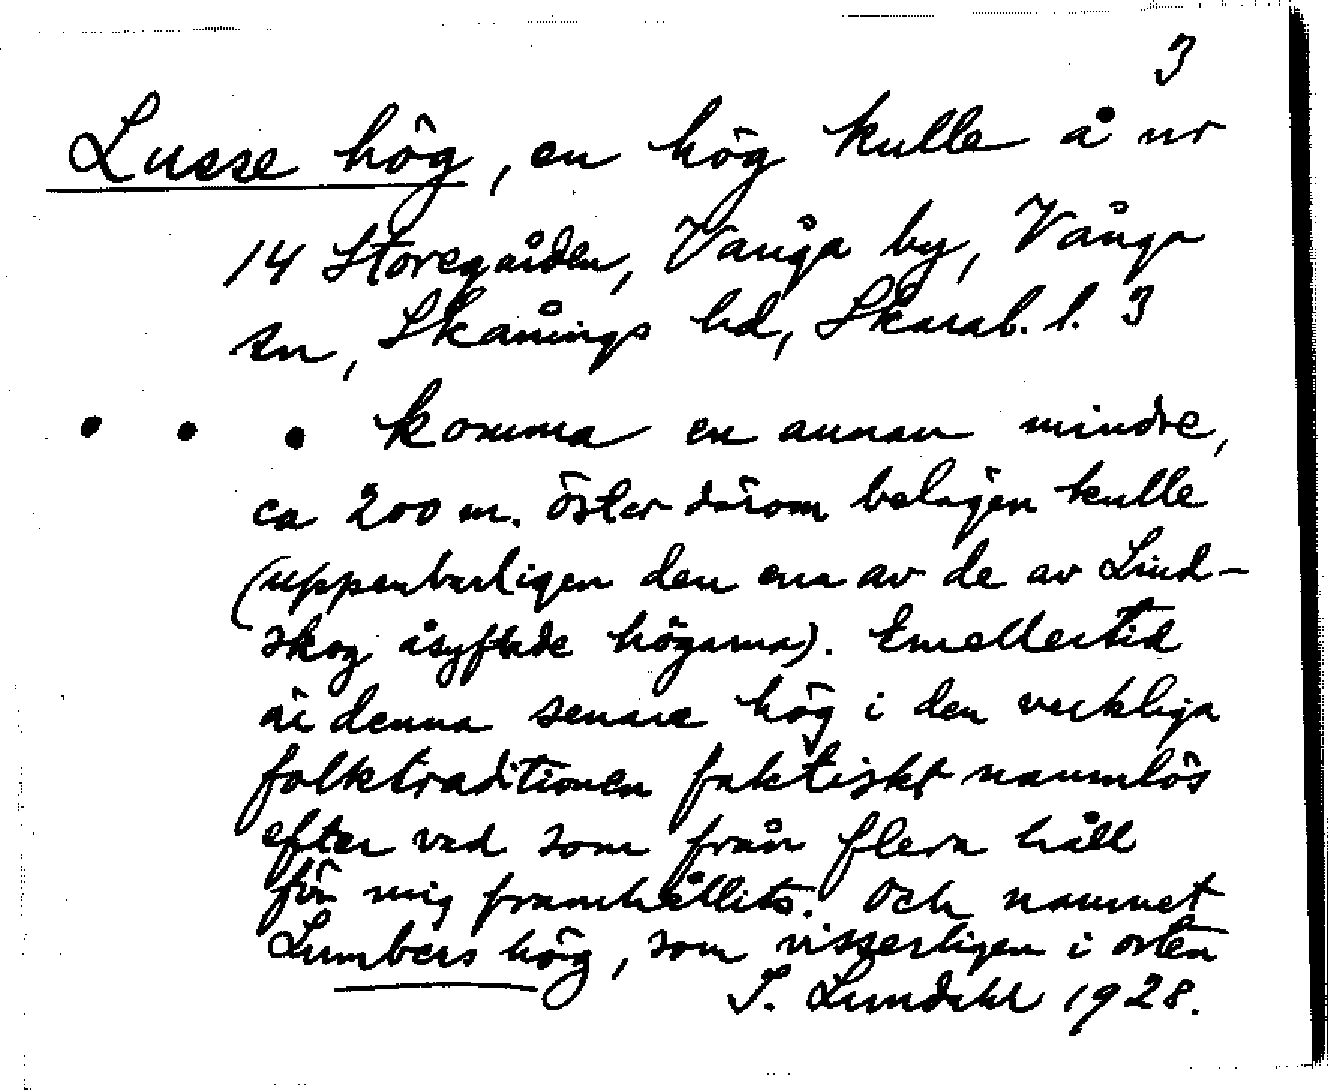 3
Lusse hög, en hög kulle å nr
14 Storegården, Vånga by, Vånga
sn, Skånings hd, Skarab. l. 3
• • • komma en annan mindre,
ca 200 m. öster därom belägen kulle
(uppenbarligen den ena av de av Lind-
skog åsyftade högarna). Emellertid
är denna senare hög i den verkliga
folktraditionen faktiskt namnlös
efter vad som från flera håll
för mig framhållits. Och namnet
Lumbers hög, som visserligen i orten
I. Lundahl 1928.